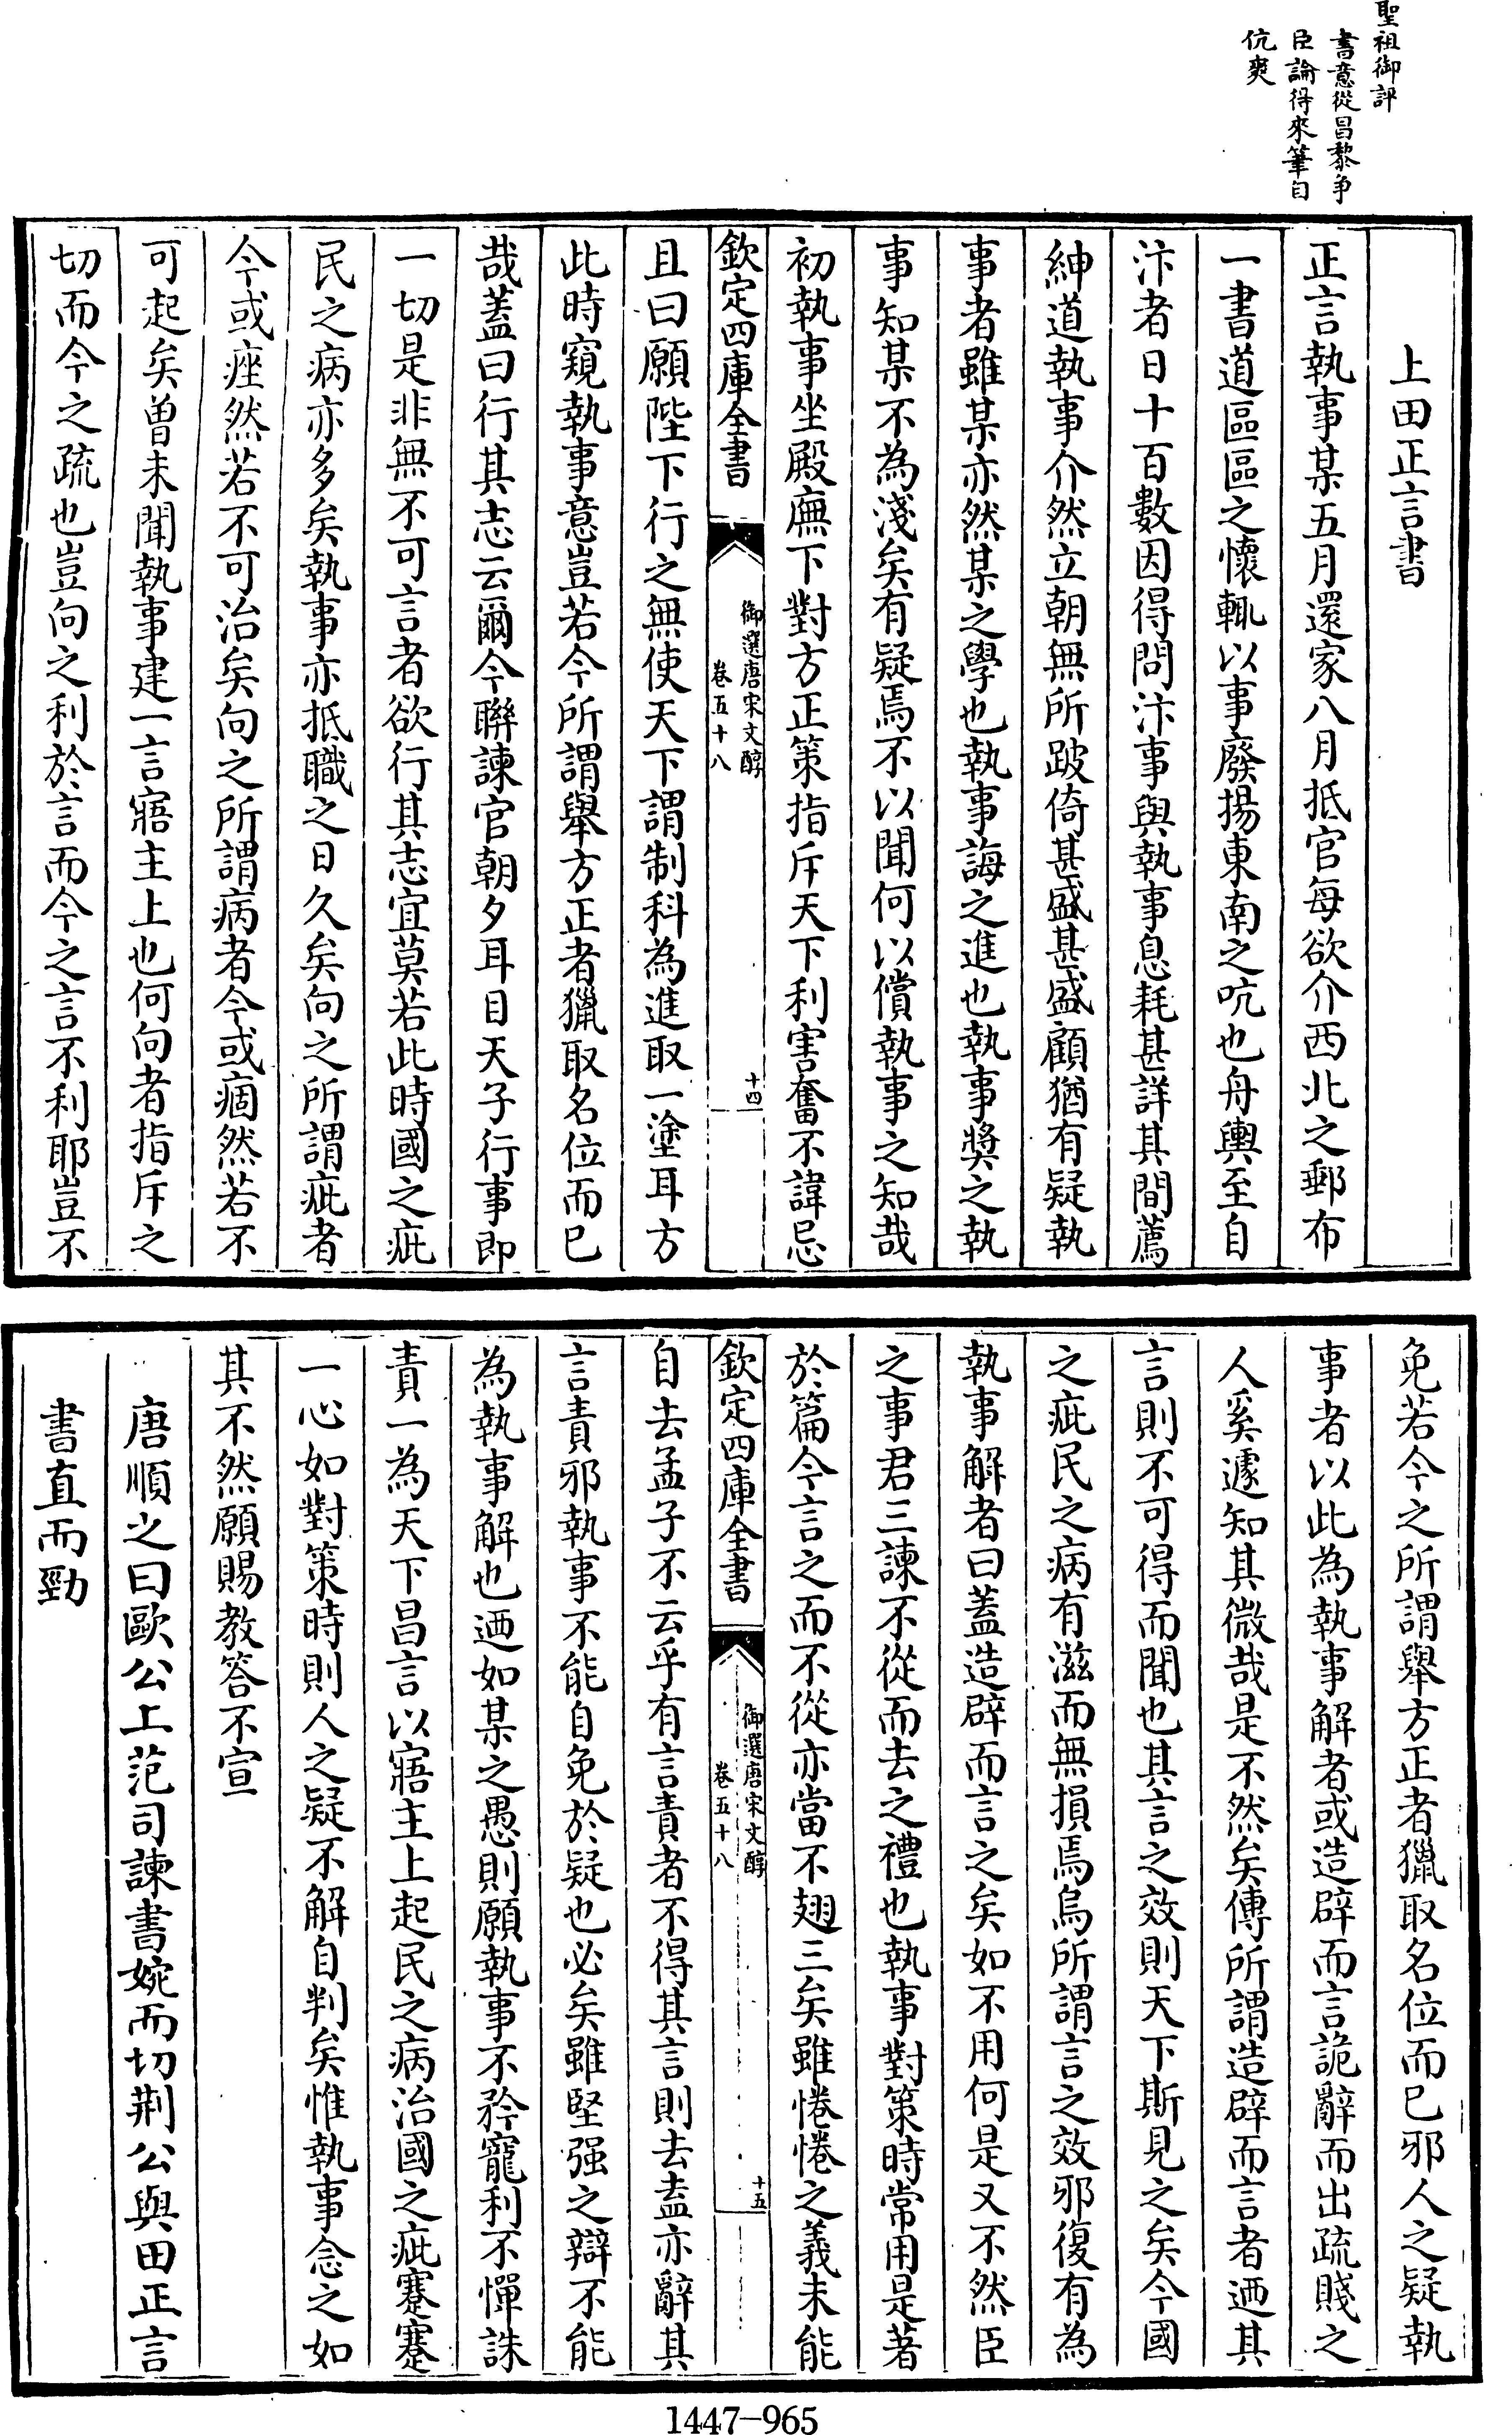 聖祖御評
書意從昌黎爭
臣論得來筆自
伉爽
上田正言書
正言執事某五月還家八月抵官每欲介西北之郵布
一書道區區之懷輒以事廢揚東南之吭也舟輿至自
汴者日十百數因得問汴事與執事息耗甚詳其間薦
紳道執事介然立朝無所跛倚甚盛甚盛顧猶有疑執
事者雖某亦然某之學也執事誨之進也執事奬之執
事知某不為淺矣有疑焉不以聞何以償執事之知哉
初執事坐殿廡下對方正策指斥天下利害奮不諱忌
欽定四庫全書
御選唐宋文醇
卷五十八
十四
且曰願陛下行之無使天下謂制科為進取一塗耳方
此時窺執事意豈若今所謂舉方正者獵取名位而已
哉蓋曰行其志云爾今聯諫官朝夕耳目天子行事即
一切是非無不可言者欲行其志宜莫若此時國之疵
民之病亦多矣執事亦抵職之日久矣向之所謂疵者
今或痤然若不可治矣向之所謂病者今或痼然若不
可起矣曾未聞執事建一言寤主上也何向者指斥之
切而今之疏也豈向之利於言而今之言不利耶豈不
免若今之所謂舉方正者獵取名位而已邪人之疑執
事者以此為執事解者或造辟而言詭辭而出疏賤之
人奚遽知其微哉是不然矣傳所謂造辟而言者迺其
言則不可得而聞也其言之效則天下斯見之矣今國
之疵民之病有滋而無損焉烏所謂言之效邪復有為
執事解者曰蓋造辟而言之矣如不用何是又不然臣
之事君三諫不從而去之禮也執事對策時常用是著
於篇今言之而不從亦當不翅三矣雖惓惓之義未能
欽定四庫全書
御選唐宋文醇
卷五十八
十五
自去孟子不云乎有言責者不得其言則去盍亦辭其
言責邪執事不能自免於疑也必矣雖堅强之辯不能
為執事解也迺如某之愚則願執事不矜寵利不憚誅
責一為天下昌言以寤主上起民之病治國之疵蹇蹇
一心如對策時則人之疑不解自判矣惟執事念之如
其不然願賜教答不宣
唐順之曰歐公上范司諫書婉而切荆公與田正言
書直而勁
1447-965